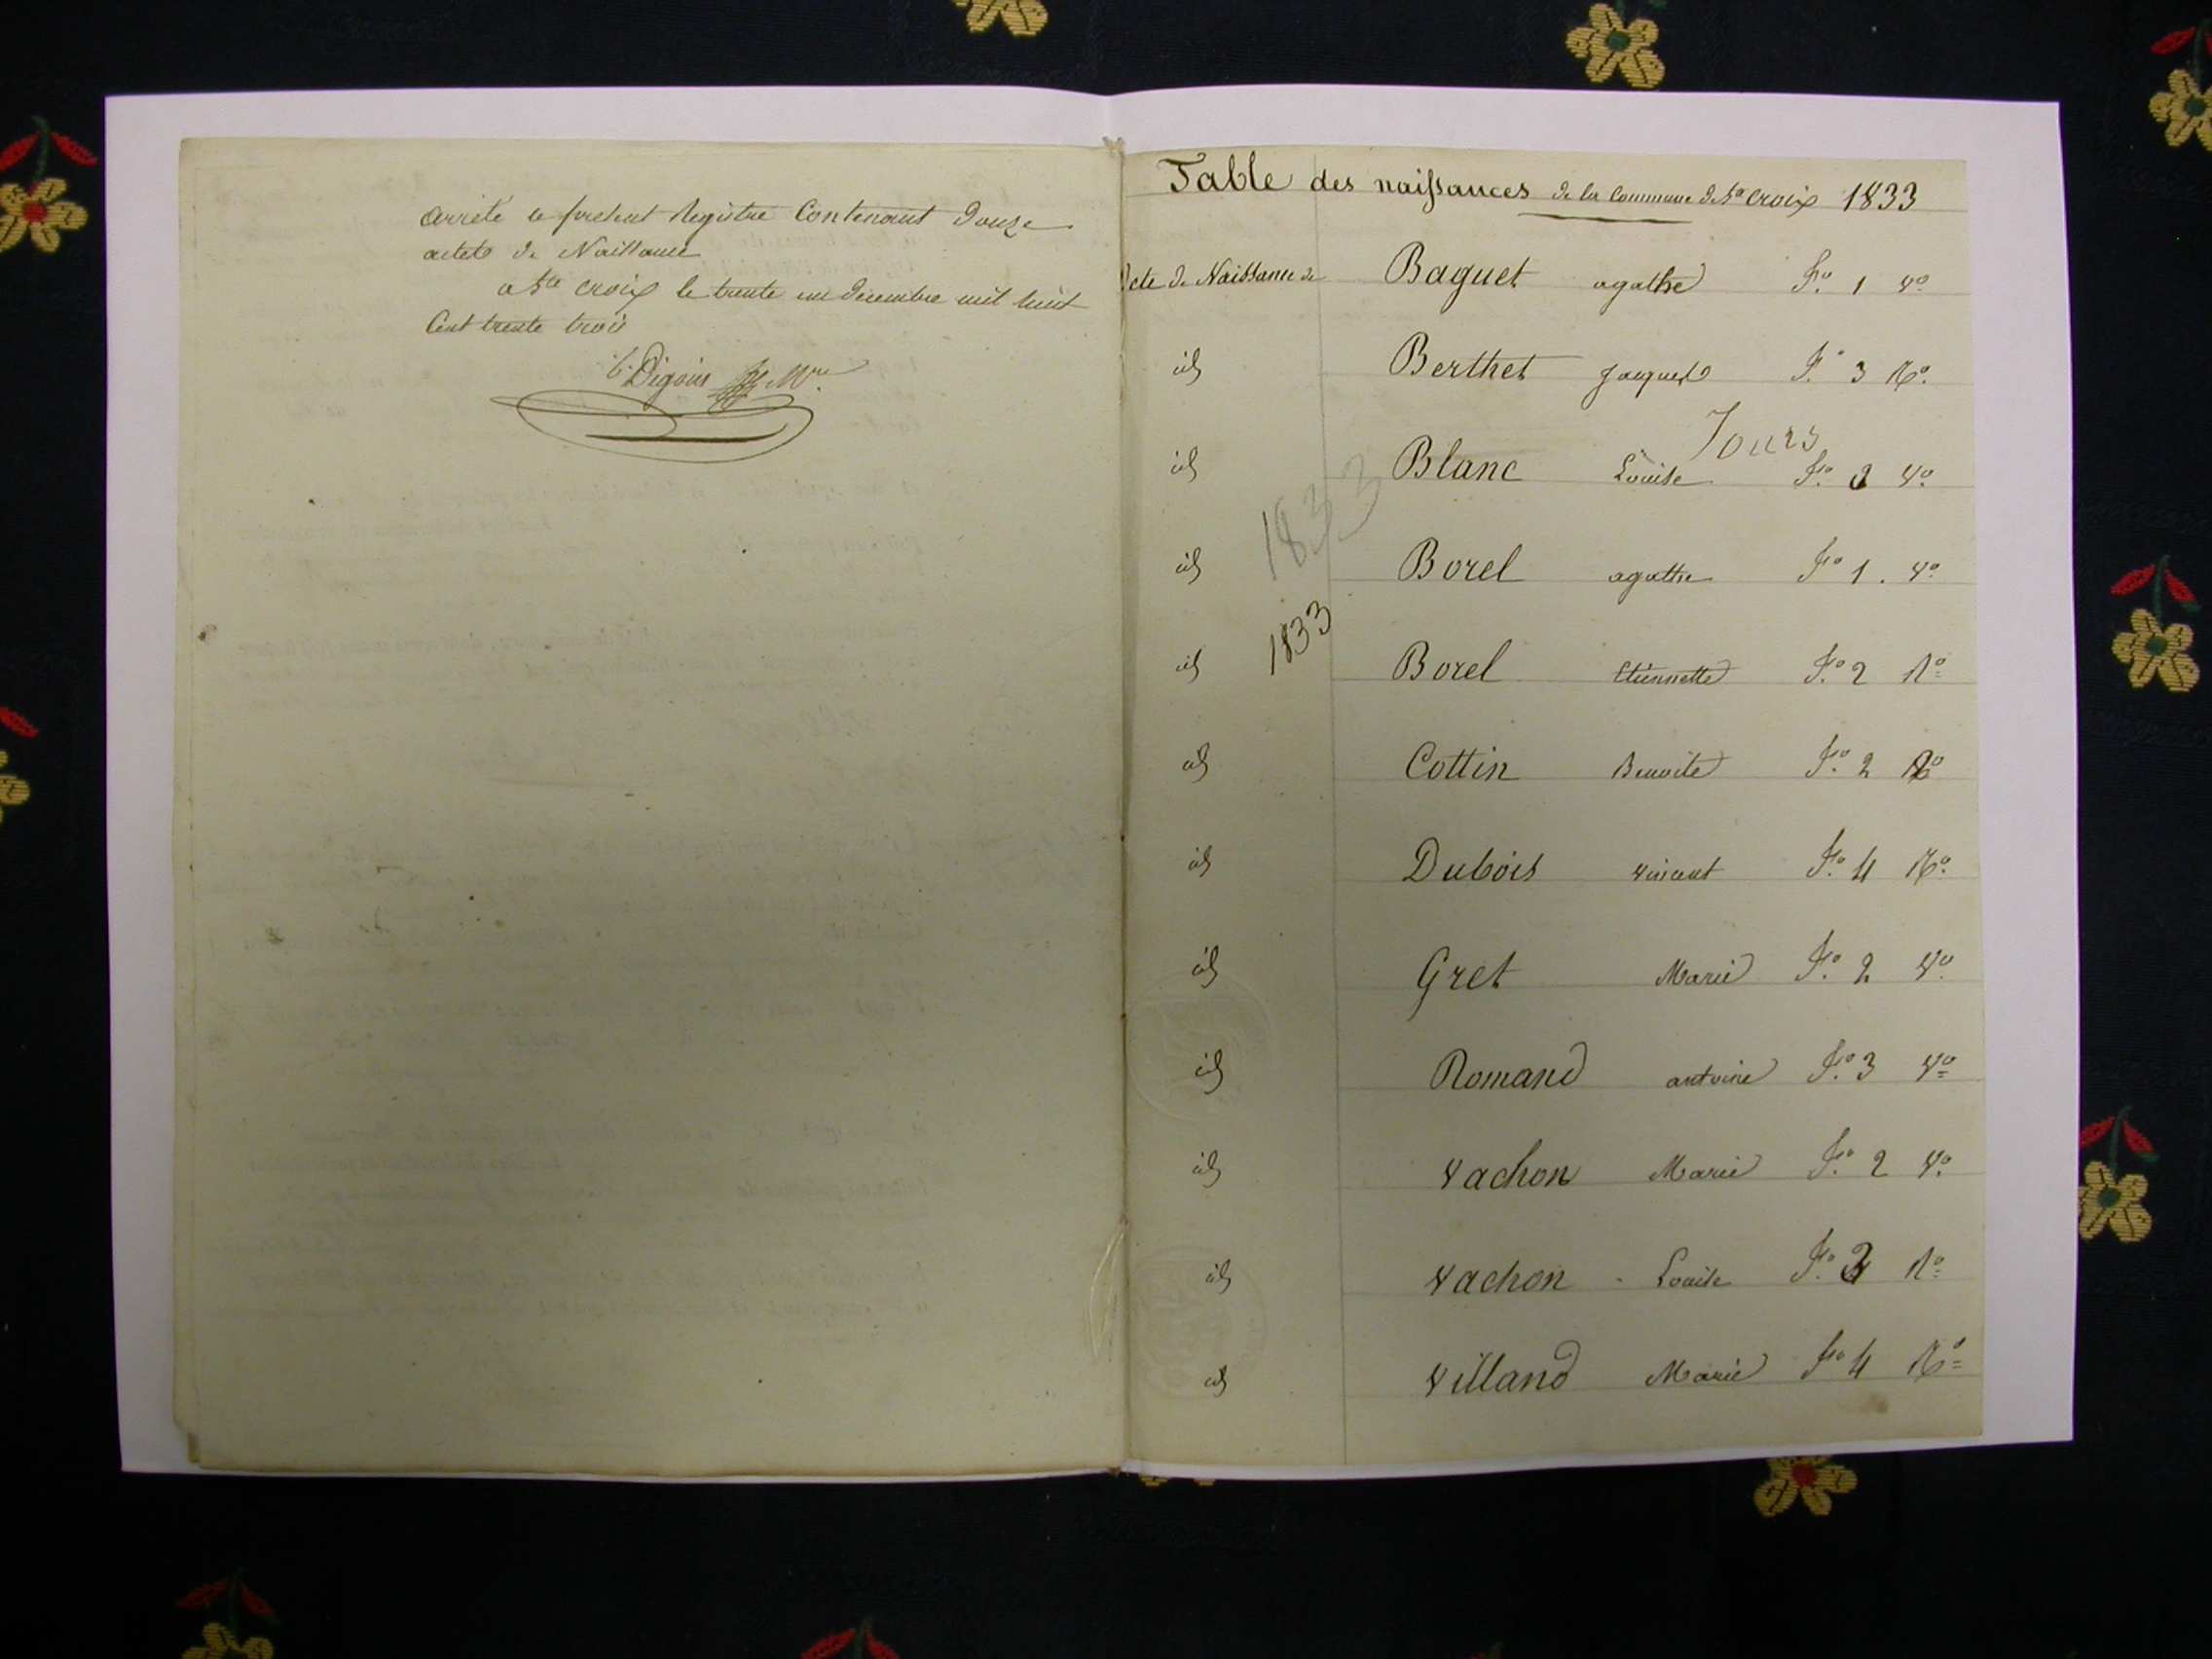 arrêté le present Registre Contenant douze
actes de Naissance
a Ste croix le trente un decembre mil huit
Cent trente trois
Digoin Mre
Table des naissances de la Commune de Ste croix 1833
Acte de Naissance de Baguet agathe Fo 1 Vo
id Berthet Jacques Fo 3 Ro
Jours
id Blanc Louise Fo Vo
1833
id Borel agathe Fo 1. Vo
1833
id Borel Etiennette Fo 2 Ro
id Cottin Benoite Fo 2 Ro
id Dubois vincent Fo 4 Ro
id Gret Marie Fo 2 Vo
id Romand antoine Fo 3 Vo
id Vachon Marie Fo 2 Vo
id Vachon Louise Fo Ro
id Villand Marie Fo 4 Ro